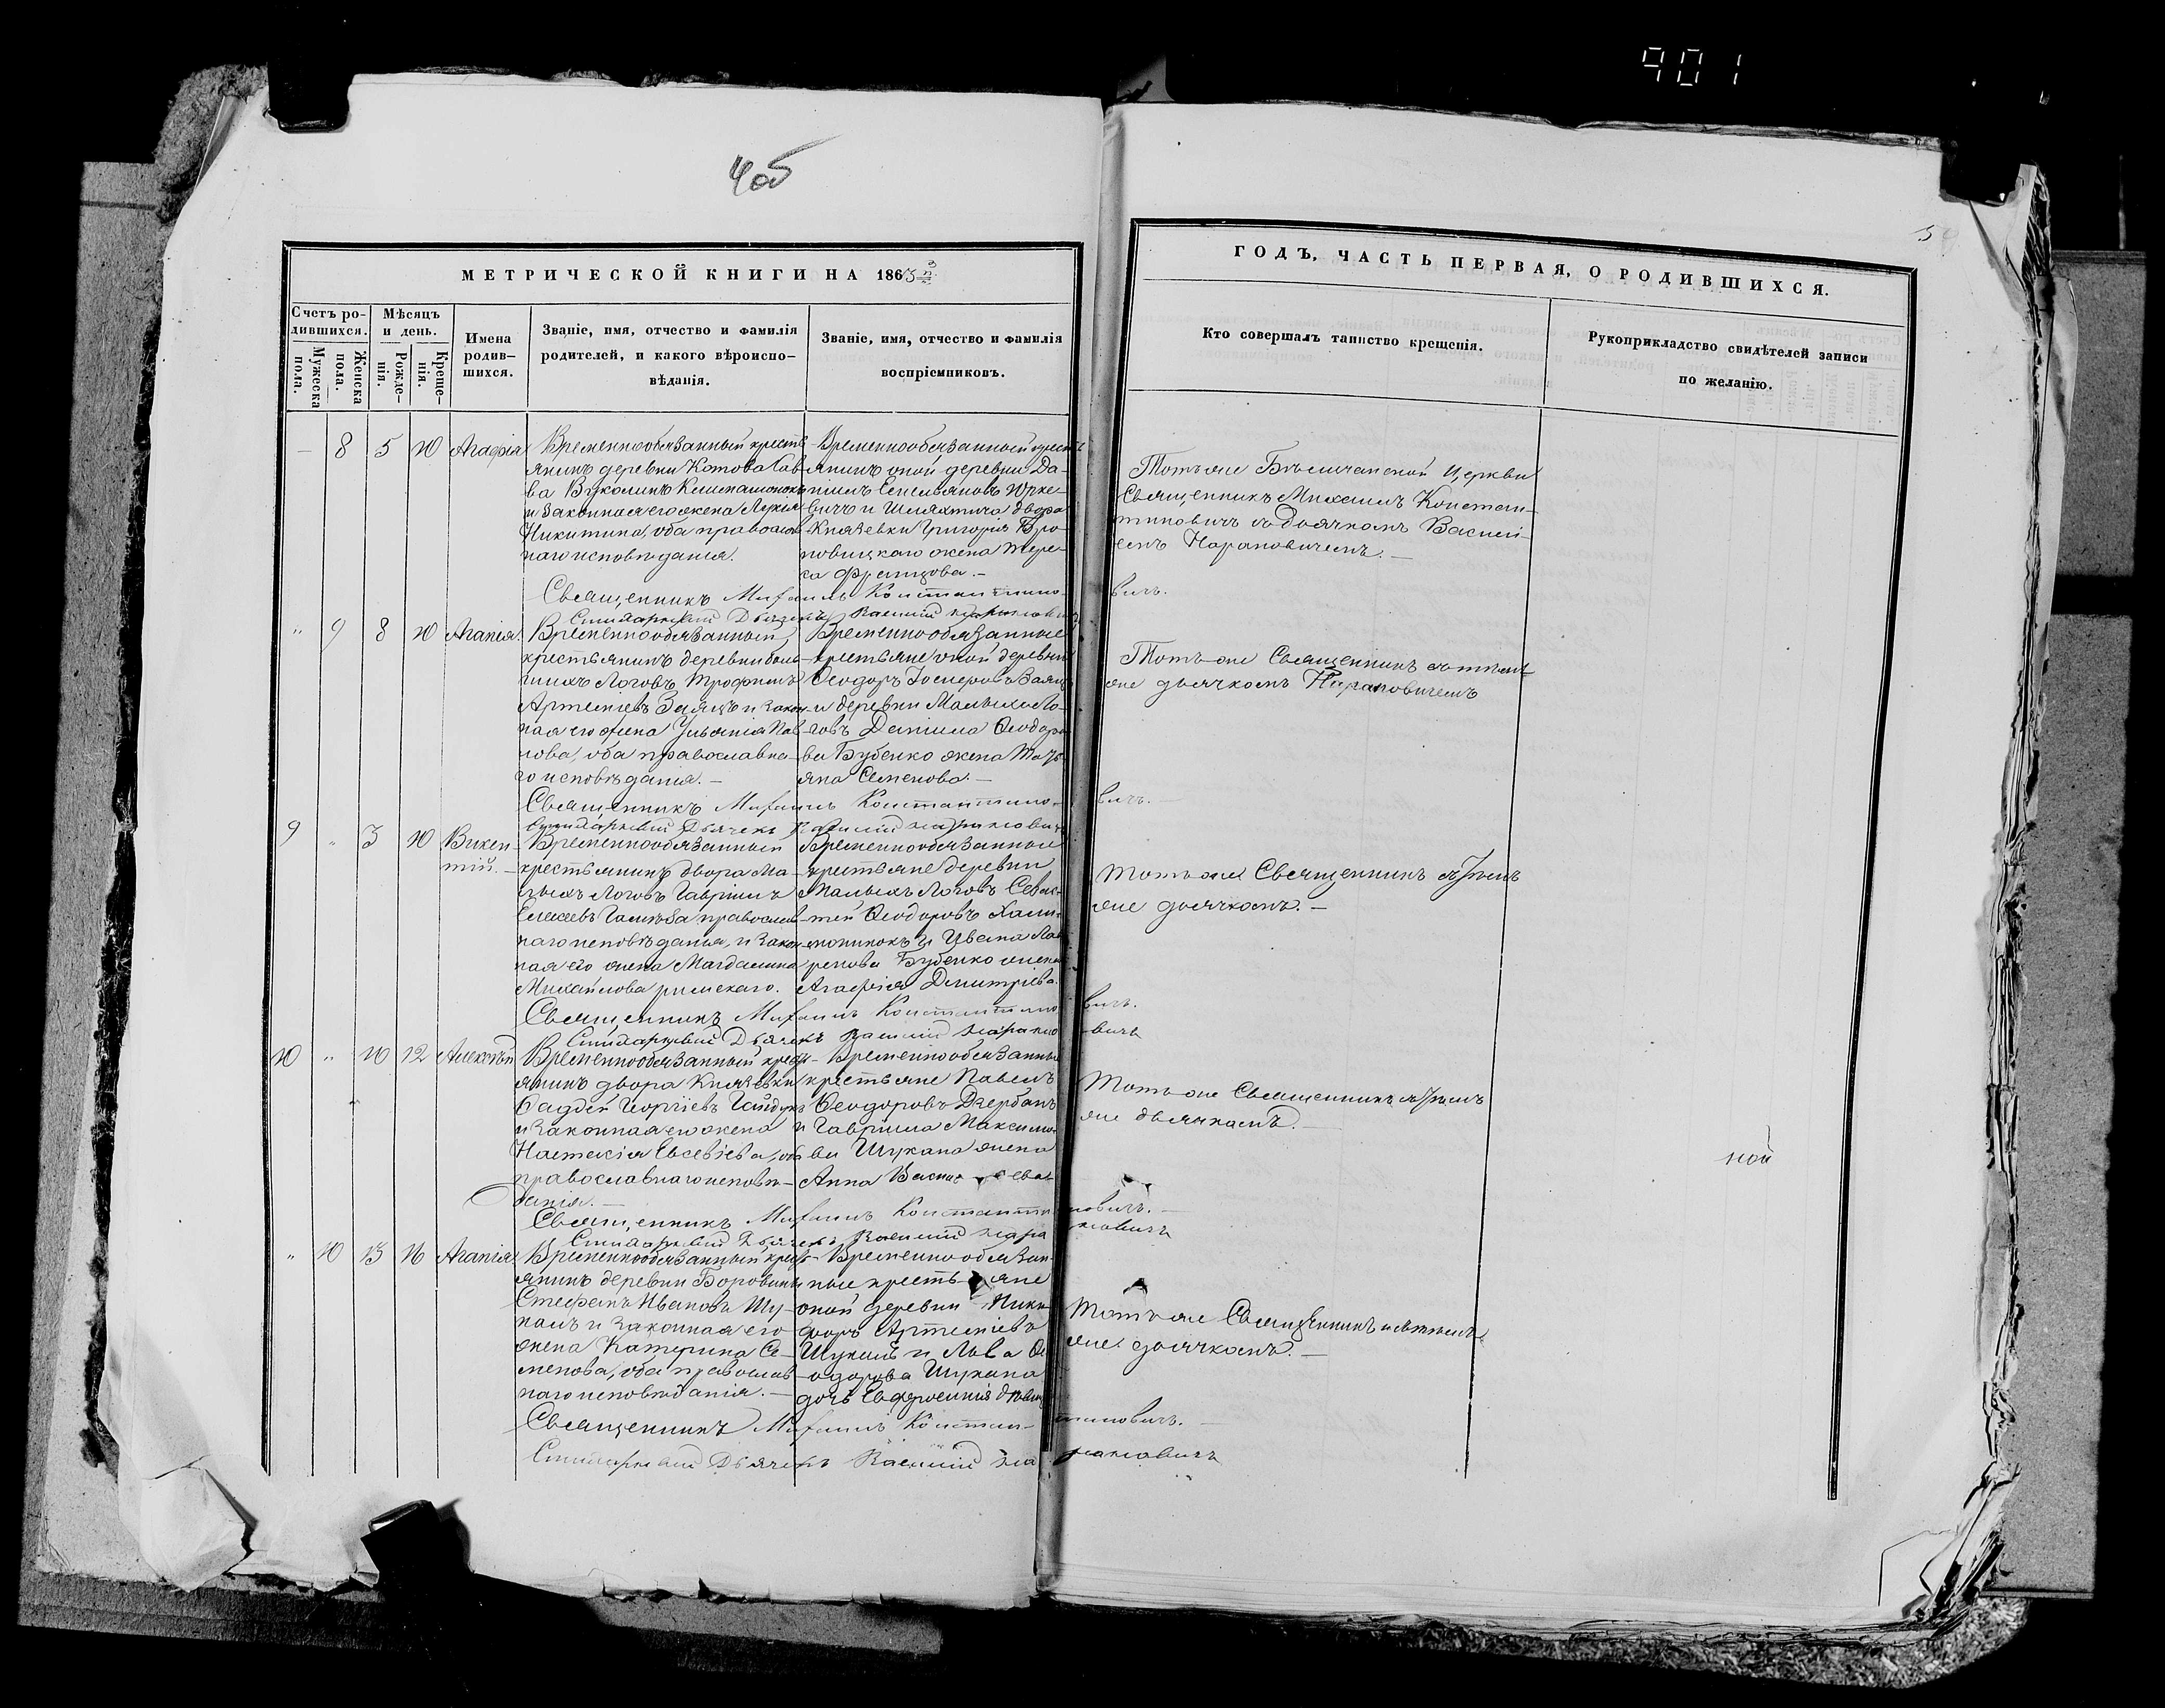 901
4об
МЕТРИЧЕСКОЙ КНИГИ НА 1863
Счетъ ро-
дившихся.
Мужеска
пола.
Женска
пола.
Мѣсяцъ
и день.
Рожде-
нія.
Креще-
нія.
Имена
родив-
шихся.
Званіе, имя, отчество и фамилія
родителей, и какого вѣроиспо-
вѣданія.
Званіе, имя, отчество и фамилія
воспріемниковъ.
ГОДЪ, ЧАСТЬ ПЕРВАЯ, О РОДИВШИХСЯ.
Кто совершалъ таинство крещенія.
Рукоприкладство свидѣтелей записи
по желанію.
— 8 5 10 Агафія
Временнообязанный кресть-
янинъ деревни Котова Сав-
ва Вуколинъ
и законная его жена Лукія
Никитина, оба православ-
наго исповѣданія.
Временнообязанный кресть-
янинъ оной деревни Да-
ніилъ Емельяновъ Юрке-
вичъ и Шляхтича двора
Князевки Григорія Бро-
новицкаго жена Тере-
са Францова. —
Тотъ же церкви
Священникъ Михаилъ Констан-
тиновичъ съ дьячкомъ Василі-
емъ Нарановичемъ. —
Священникъ Михаилъ Константиновичъ.
Дьячекъ Василій
" 9 8 10 Агапія.
Временнообязанный
крестьянинъ деревни Боль-
шихъ Логовъ Трофимъ
Артеміевъ Заяцъ и закон-
ная его жена Ульянія Пав-
лова, оба православна-
го исповѣданія. —
Временнообязанные
крестьяне оной деревни
Ѳеодоръ Заяцъ
и деревни Малыхъ Ло-
говъ Даніила Ѳеодоро-
ва Бубенко жена Тать-
яна Семенова. —
Тотъ же Священникъ съ тѣмъ
же дьячкомъ Нарановичемъ
Священникъ Михаилъ Константиновичъ. —
Дьячекъ Василій
9 " 3 10 Викен-
тій. —
Временнообязанный
крестьянинъ двора Ма-
лыхъ Логовъ Гавріилъ
православ-
наго исповѣданія, и закон-
ная его жена Магдалина
Михайлова римскаго.
Временнообязанные
крестьяне деревни
Малыхъ Логовъ
Ѳеодоровъ
и Ивана Лав-
ренова Бубенко жена
Агафія Димитріева.
Тотъ же Священникъ съ тѣмъ
же дьячкомъ. —
Священникъ Михаилъ Константиновичъ.
Дьячекъ Василій
10 " 10 12 Алексѣй
Временнообязанный кресть-
янинъ двора Князевки
Ѳаддей Георгіевъ Гайдукъ
и законная его жена
Настасія Евсевіева, оба
православнаго исповѣ-
данія. —
Временнообязанные
крестьяне Павелъ
Ѳеодоровъ Дзербанъ
и Гавріила Максимо-
ва Шукана жена
Анна Васильева
Тотъ же Священникъ съ тѣмъ
же дьячкомъ. —
Священникъ Михаилъ Константиновичъ. —
Дьячекъ Василій
" 10 13 16 Агапія
Временнообязанный кресть-
янинъ деревни Боровики
Стефанъ Ивановъ Шу-
канъ и законная его
жена Катерина Се-
менова, оба православ-
наго исповѣданія. —
Временнообязан-
ные крестьяне
оной деревни Ники-
форъ Артеміевъ
Шуканъ и Льва Ѳе-
одорова Шукана
дочь Евфросинія дѣвица
Тотъ же Священникъ и съ тѣмъ
же дьячкомъ. —
Священникъ Михаилъ Константиновичъ. —
Дьячекъ Василій